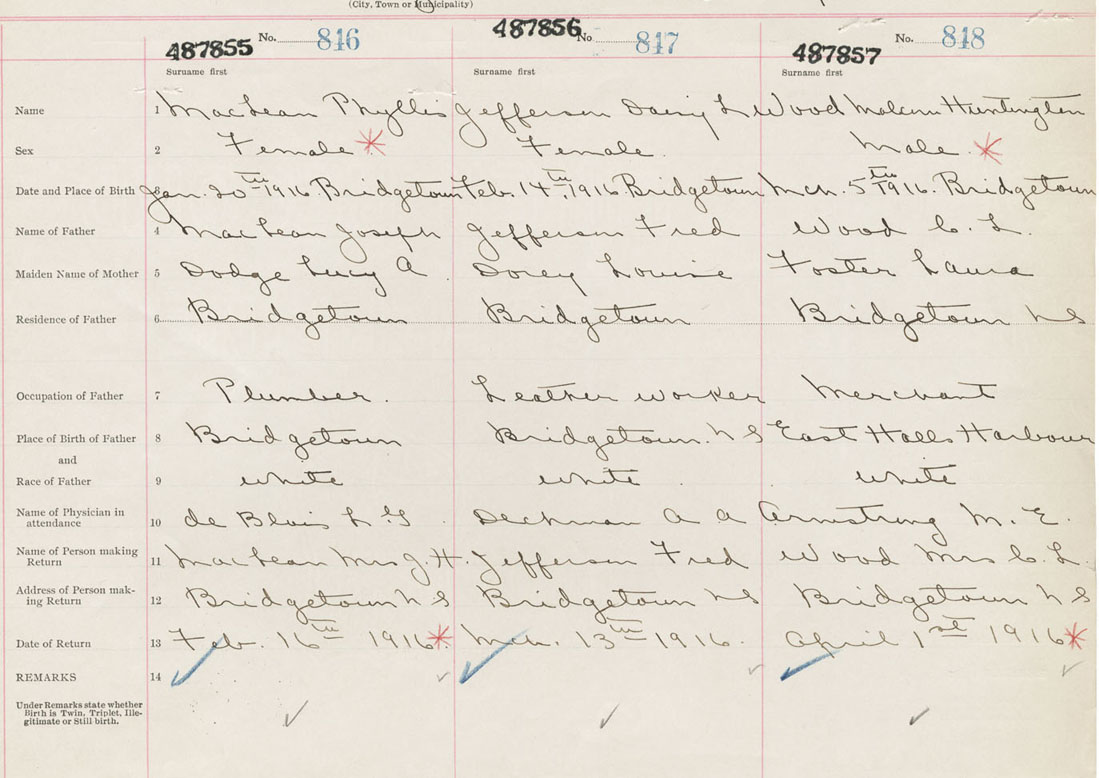 (City, Town or Municipality)
487855 No. 846 487856 No 847 487857 No. 848
Surname first Surname first Surname first
Name 1 MacLean Phyllis Jefferson Daisy L Wood Malcom Huntington
Sex 2 Female Female. Male.
Date and Place of Birth 3 Jan. 20th 1916. Bridgetown Feb. 14th, 1916 Bridgetown Mch. 5th 1916. Bridgetown
Name of Father 4 MacLean Joseph Jefferson Fred Wood C. L.
Maiden Name of Mother 5 Dodge Lucy A Dorey Louise Foster Laura
Residence of Father 6 Bridgetown Bridgetown Bridgetown N S
Occupation of Father 7 Plumber. Leather worker Merchant
Place of Birth of Father 8 Bridgetown Bridgetown. N S East Halls Harbour
and
Race of Father 9 white white white
Name of Physician in
attendance 10 de Blois L. G Dechman A A Armstrong M. E.
Name of Person making
Return 11 MacLean Mrs J. H. Jefferson Fred Wood Mrs C. L.
Address of Person mak-
ing Return 12 Bridgetown N S Bridgetown N S Bridgetown N S
Date of Return 13 Feb. 16th 1916. Mch. 13th 1916. April 1st 1916
REMARKS 14
Under Remarks state whether
Birth is Twin, Triplet, Ille-
gitimate or Still birth.